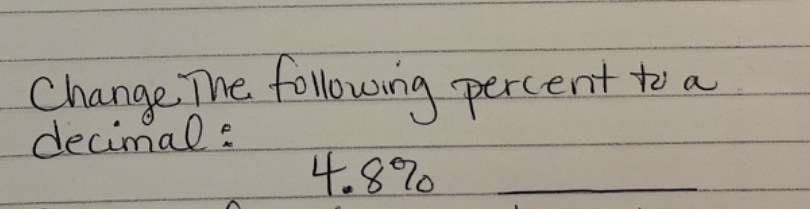 Change The following percent to a
decimal:
4.8% ________